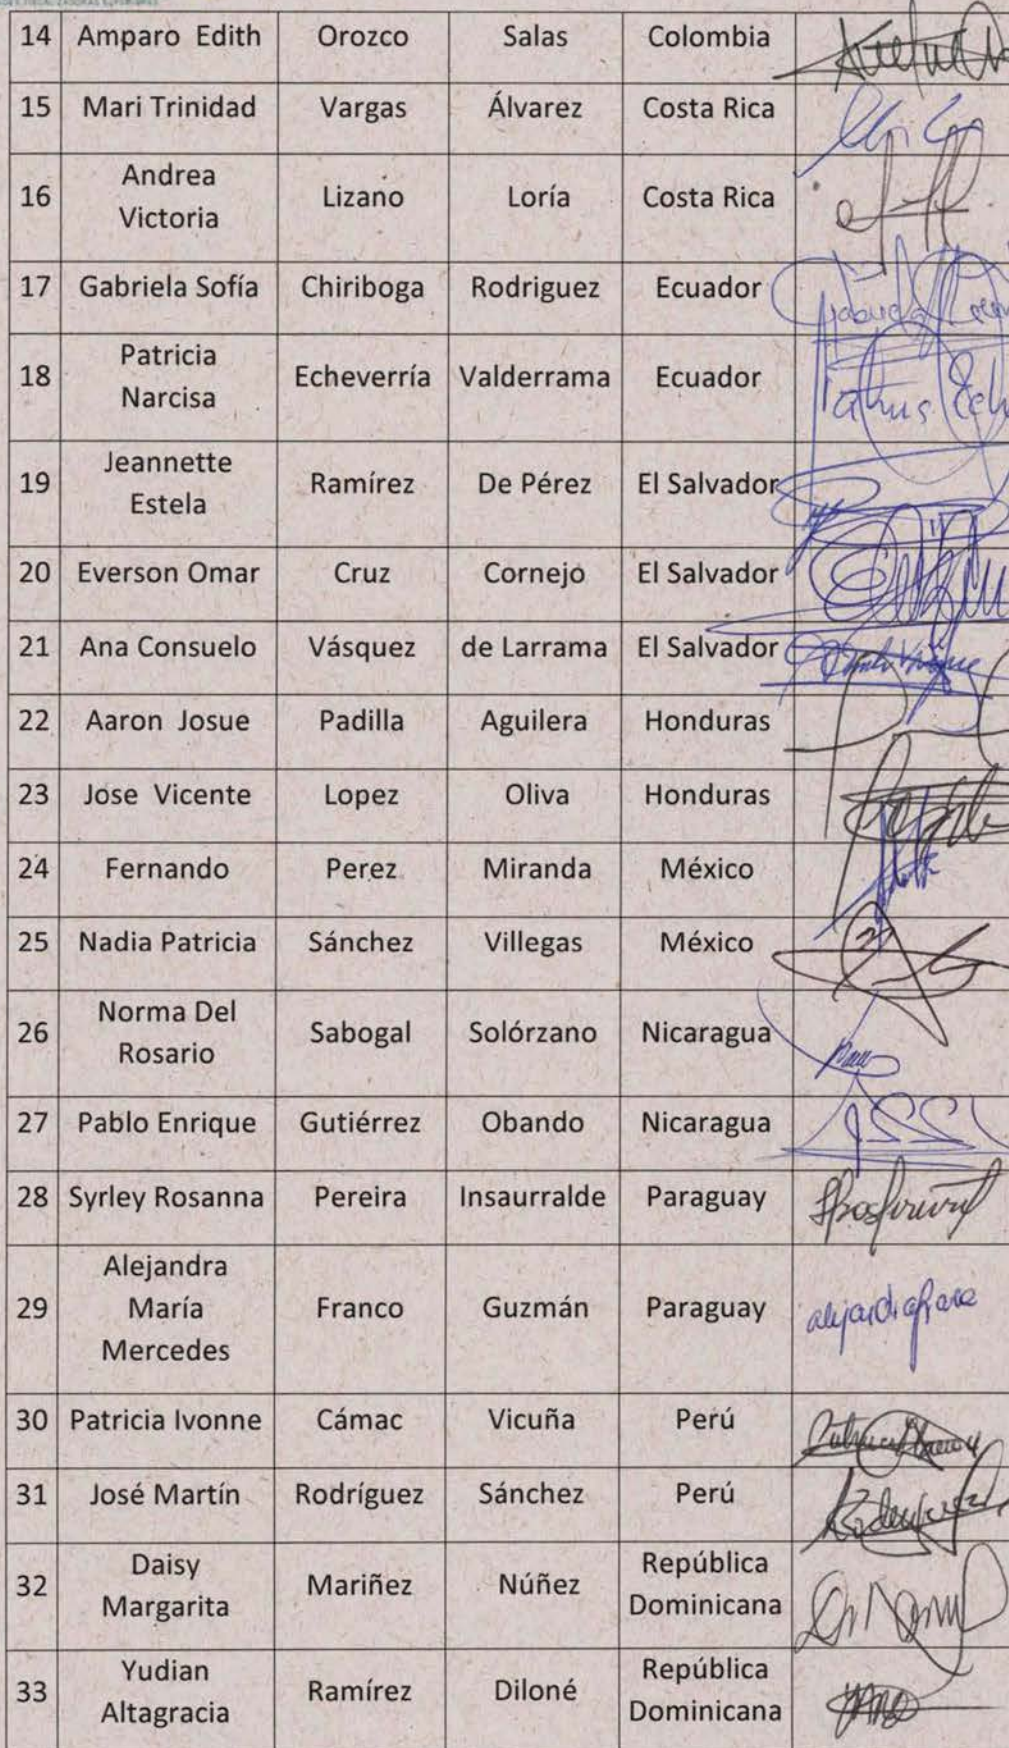 14 Amparo Edith Orozco Salas Colombia
15 Mari Trinidad Vargas Álvarez Costa Rica
16 Andrea Victoria Lizano Loría Costa Rica
17 Gabriela Sofía Chiriboga Rodriguez Ecuador
18 Patricia Narcisa Echeverría Valderrama Ecuador
19 Jeannette Estela Ramírez De Pérez El Salvador
20 Everson Omar Cruz Cornejo El Salvador
21 Ana Consuelo Vásquez de Larrama El Salvador
22 Aaron Josue Padilla Aguilera Honduras
23 Jose Vicente Lopez Oliva Honduras
24 Fernando Perez Miranda México
25 Nadia Patricia Sánchez Villegas México
26 Norma Del Rosario Sabogal Solórzano Nicaragua
27 Pablo Enrique Gutiérrez Obando Nicaragua
28 Syrley Rosanna Pereira Insaurralde Paraguay
29 Alejandra María Mercedes Franco Guzmán Paraguay
30 Patricia Ivonne Cámac Vicuña Perú
31 José Martín Rodríguez Sánchez Perú
32 Daisy Margarita Mariñez Núñez República Dominicana
33 Yudian Altagracia Ramírez Diloné República Dominicana